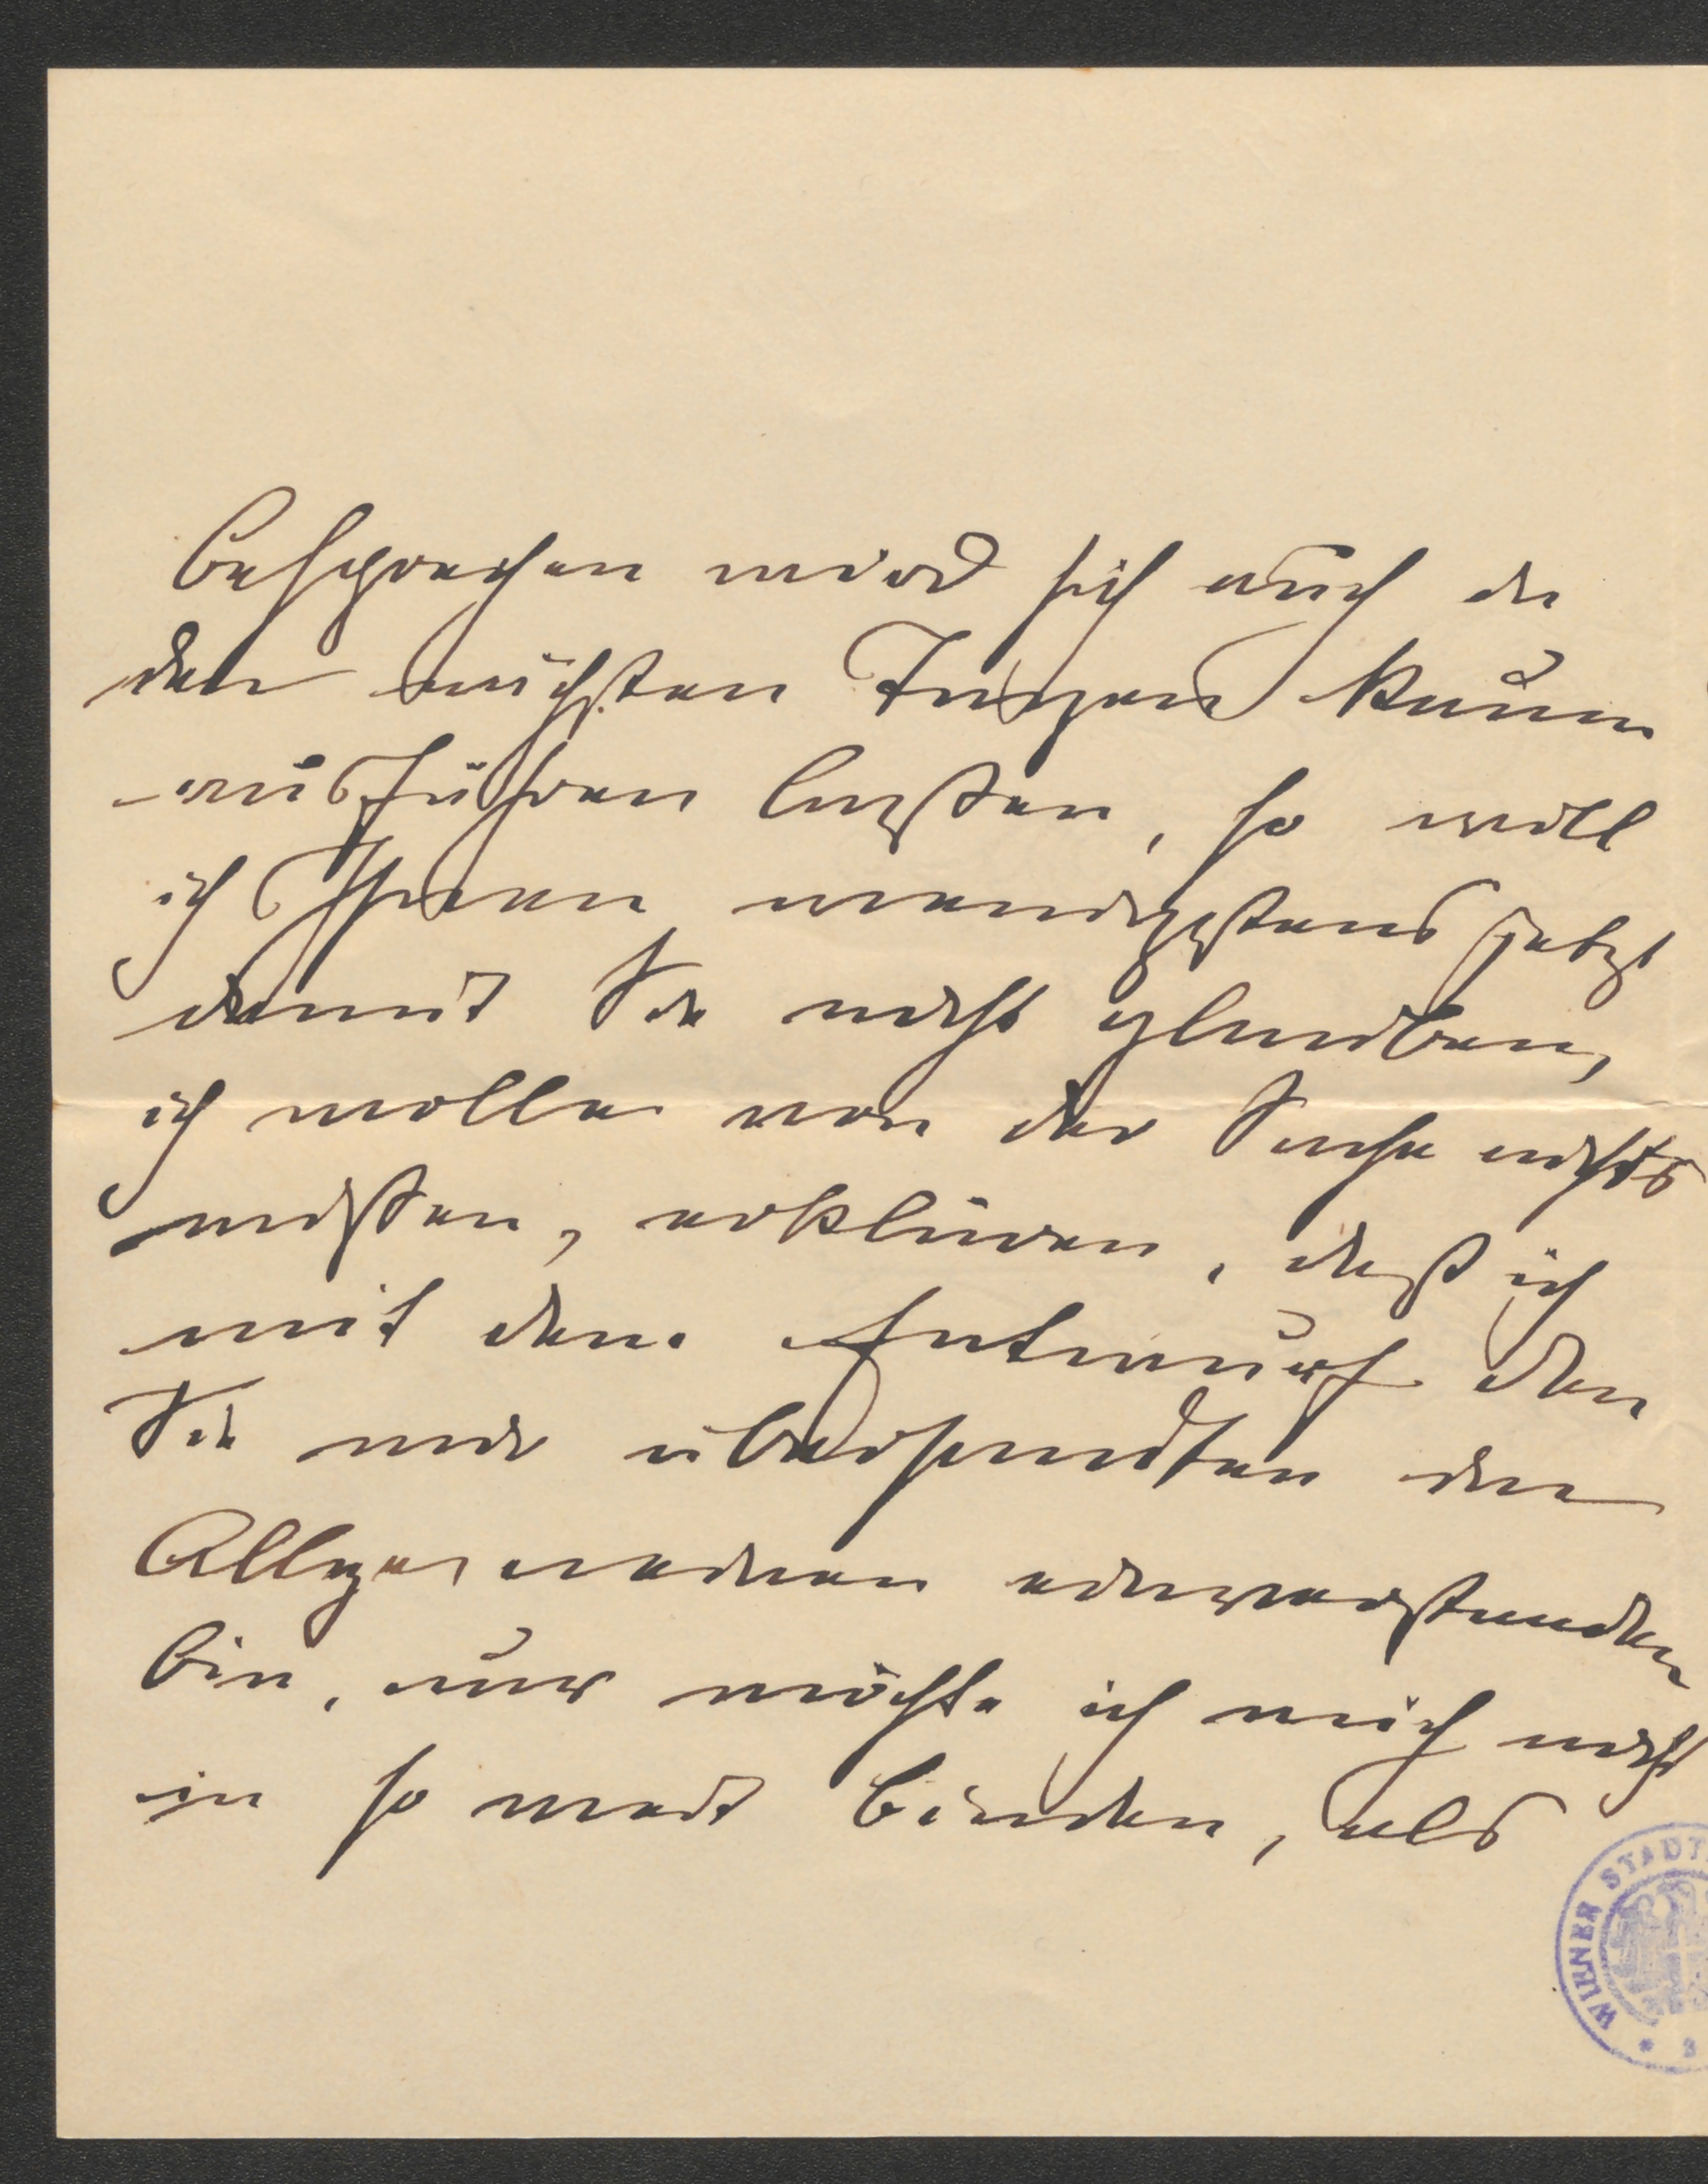 besprechen wird sich auch in
den nächsten Tagen kaum
ausführen laßen, so will
ich Ihnen wenigstens jetzt
damit Sie nicht glauben,
ich wolle von der Sache nichts
wißen, erklären, daß ich
mit dem Entwurf den
Sie mir übersandten im
Allgemeinen einverstanden
bin, nur möchte ich mich nicht
in so weit binden, als
WIENER STADT